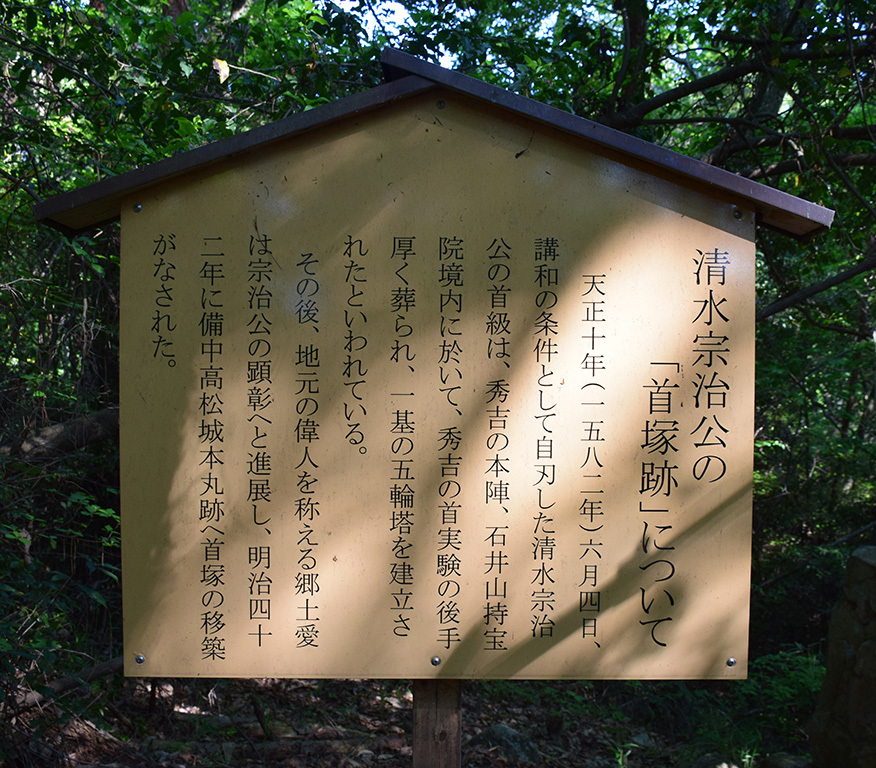 清水宗治公の
「首塚跡」について
天正十年（一五八二年）六月四日、
講和の条件として自刃した清水宗治
公の首級は、秀吉の本陣、石井山持宝
院境内に於いて、秀吉の首実験の後手
厚く葬られ、一基の五輪塔を建立さ
れたといわれている。
その後、地元の偉人を称える郷土愛
は宗治公の顕彰へと進展し、明治四十
二年に備中高松城本丸跡へ首塚の移築
がなされた。